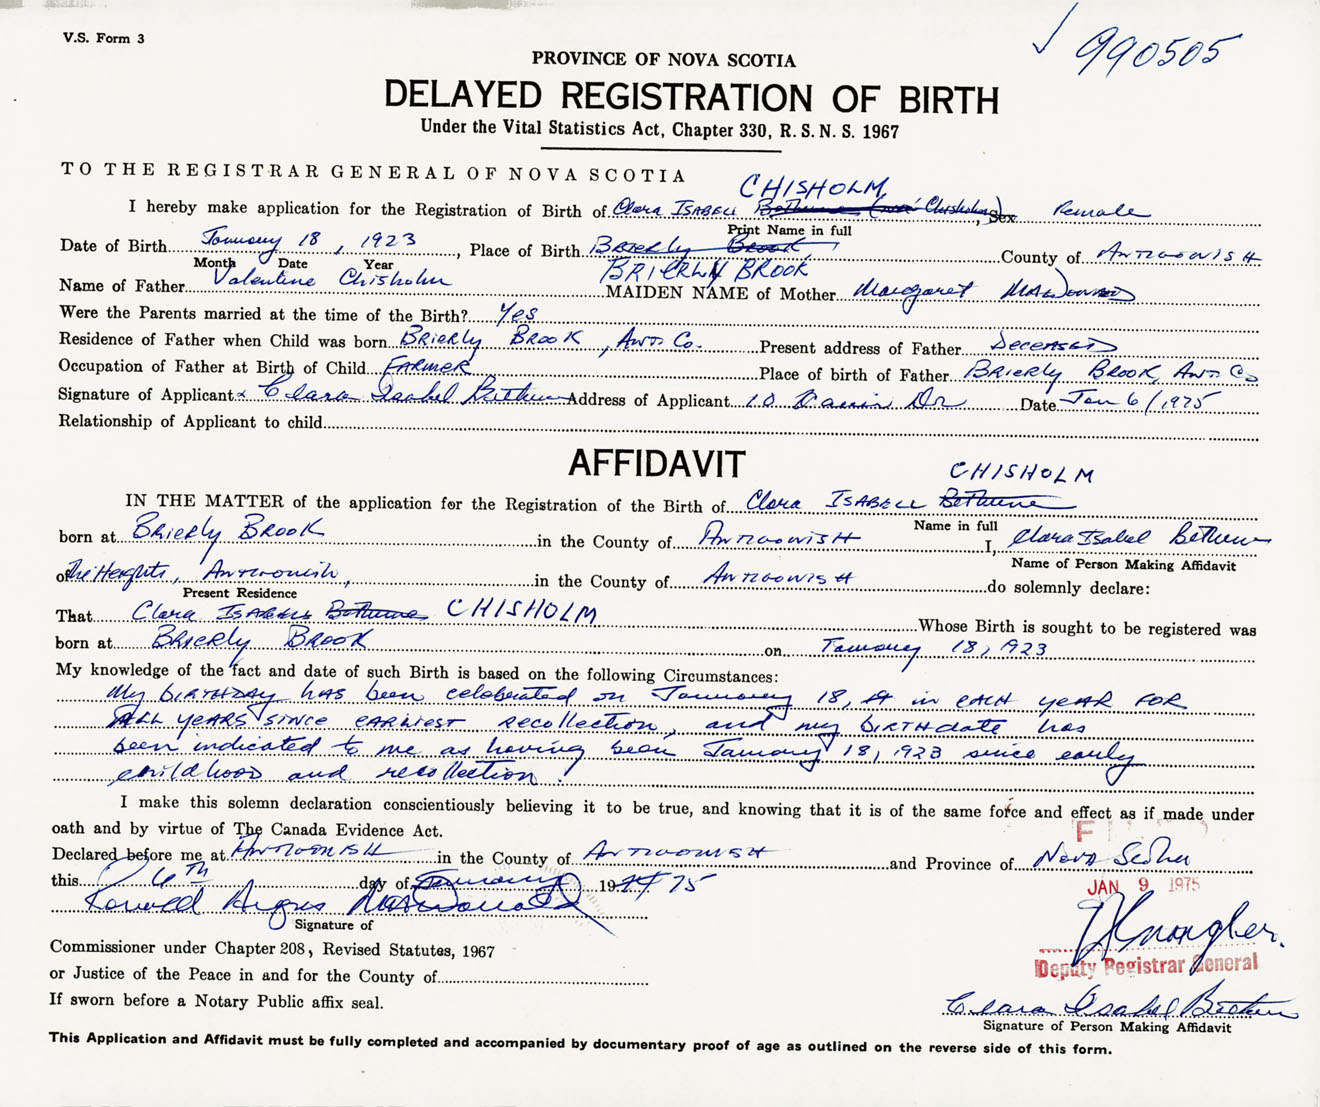 V.S. Form 3
990505
PROVINCE OF NOVA SCOTIA
DELAYED REGISTRATION OF BIRTH
Under the Vital Statistics Act, Chapter 330, R. S. N. S. 1967
TO THE REGISTRAR GENERAL OF NOVA SCOTIA
CHISHOLM
I hereby make application for the Registration of Birth of Clara ISABELL Bethune (née Chisholm), Sex Female
Print Name in full
Date of Birth January 18, 1923, Place of Birth Brierly Brook, County of ANTIGONISH
Month Date Year BRIERLY BROOK
Name of Father Valentine Chisholm MAIDEN NAME of Mother Margaret MacDonald
Were the Parents married at the time of the Birth? Yes
Residence of Father when Child was born Brierly Brook, Ant. Co. Present address of Father Deceased
Occupation of Father at Birth of Child FARMER Place of birth of Father Brierly Brook, Ant. Co
Signature of Applicant x Clara Isabel Bethune Address of Applicant 10 Dr Date Jan 6/1975
Relationship of Applicant to child
AFFIDAVIT
CHISHOLM
IN THE MATTER of the application for the Registration of the Birth of Clara ISABELL Bethune
Name in full
born at Brierly Brook in the County of ANTIGONISH I, Clara Isabel Bethune
Name of Person Making Affidavit
of The Heights, Antigonish, in the County of ANTIGONISH do solemnly declare:
Present Residence
That Clara ISABELL Bethune CHISHOLM Whose Birth is sought to be registered was
born at Brierly Brook on January 18, 1923
My knowledge of the fact and date of such Birth is based on the following Circumstances:
My birthday has been celebrated on January 18, in each year for
all years since earliest recollection, and my birthdate has
been indicated to me as having been January 18, 1923 since early
childhood and recollection.
I make this solemn declaration conscientiously believing it to be true, and knowing that it is of the same force and effect as if made under
oath and by virtue of The Canada Evidence Act.
Declared before me at ANTIGONISH in the County of ANTIGONISH and Province of Nova Scotia
this 6TH day of January 19 75
JAN 9 1975
Ronald Angus MacDonald
Signature of
Commissioner under Chapter 208, Revised Statutes, 1967
Deputy Registrar General
or Justice of the Peace in and for the County of
If sworn before a Notary Public affix seal.
Clara Isabel Bethune
Signature of Person Making Affidavit
This Application and Affidavit must be fully completed and accompanied by documentary proof of age as outlined on the reverse side of this form.